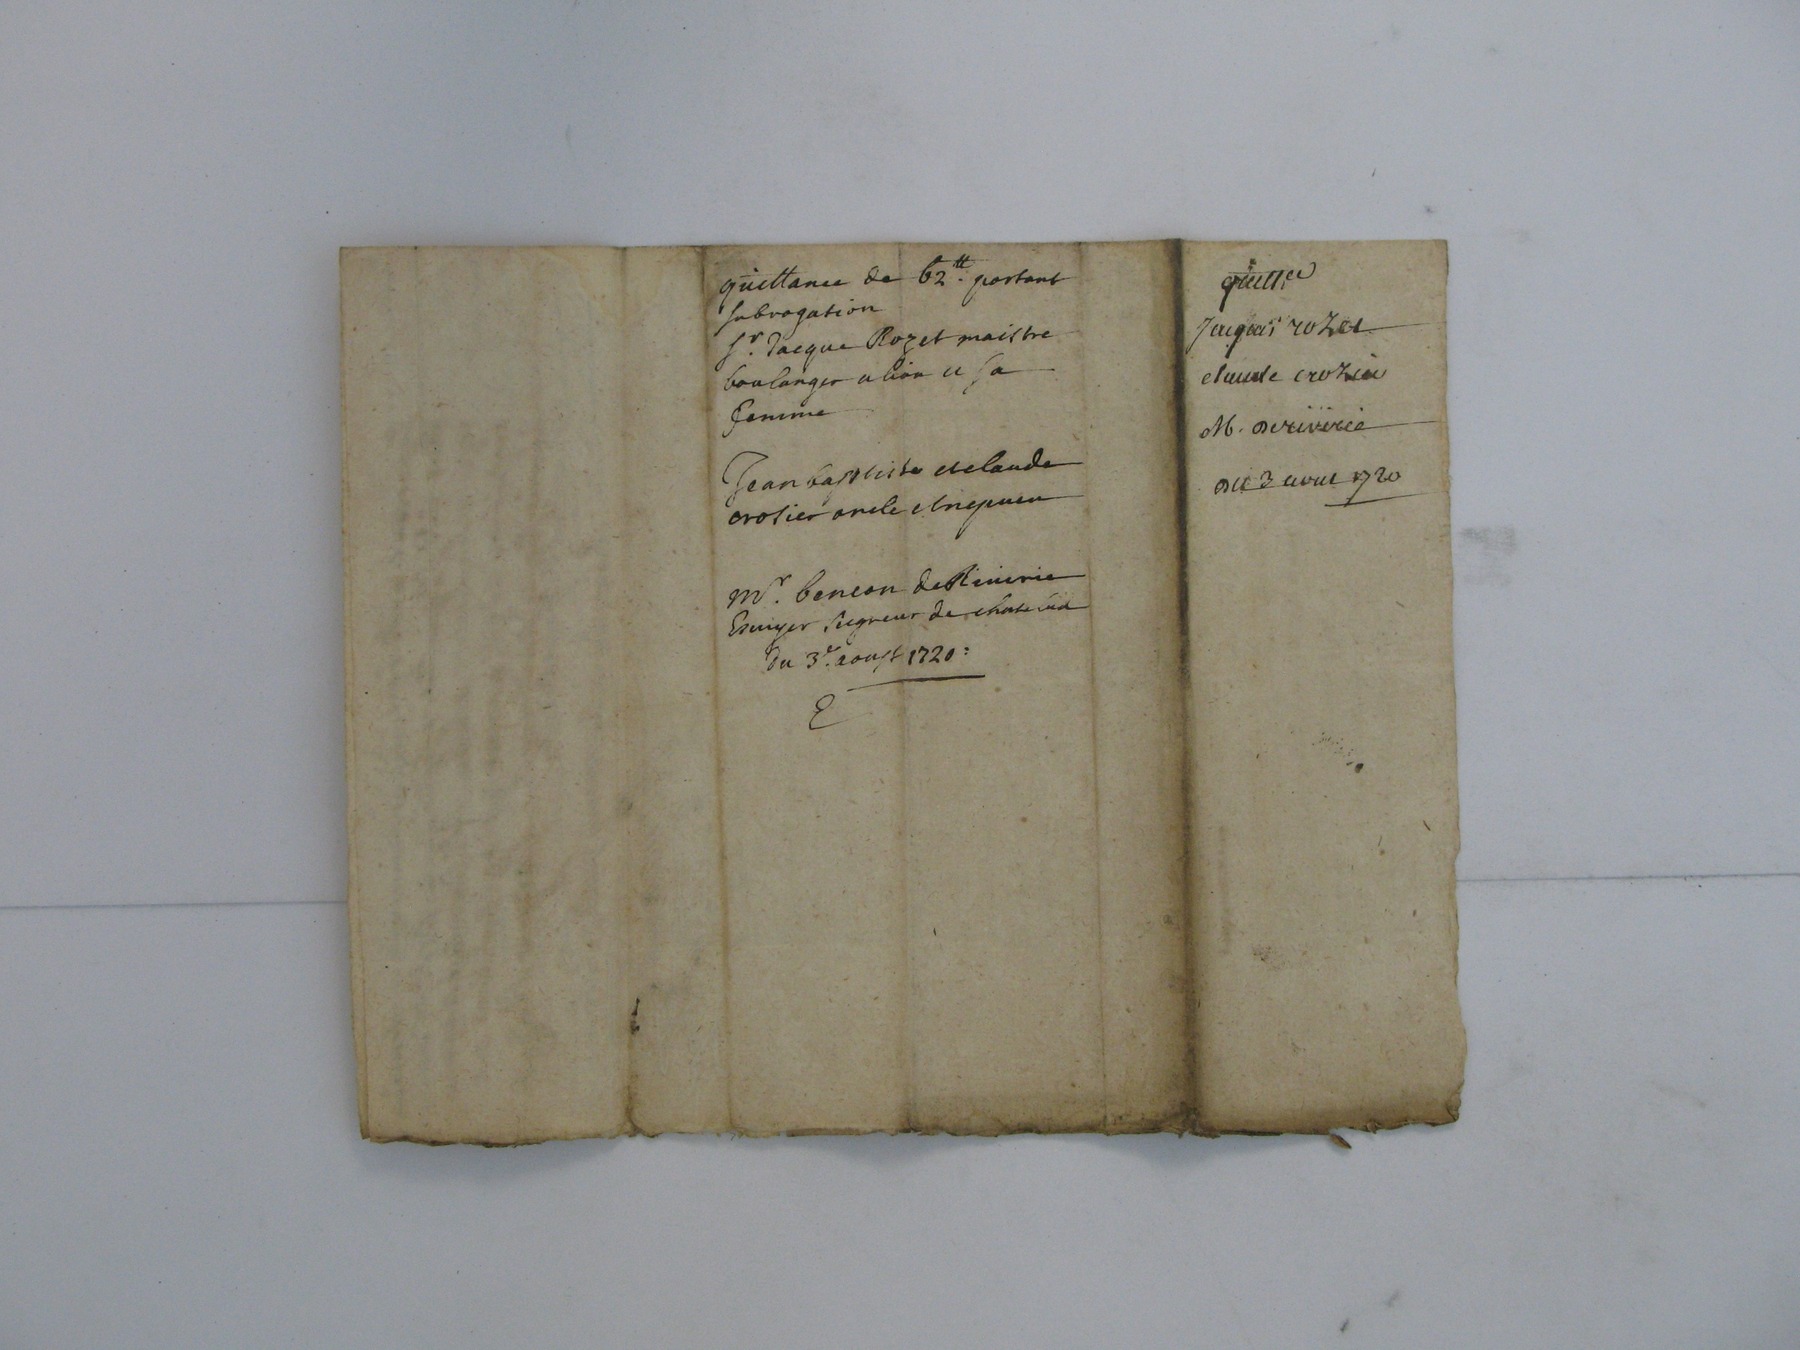 quittance de 62 ₶. portant
subrogation
Sr. Jacque Rozet maistre
boulanger a lion et sa
femme
Jean baptiste et claude
crosier oncle et nepueu
Mr. bencon de Riuerie
Escuyer seigneur de
du 3e. aoust 1720:
quittce
Jacques rozet
claude crozier
M. de riverie
du 3 aout 1720